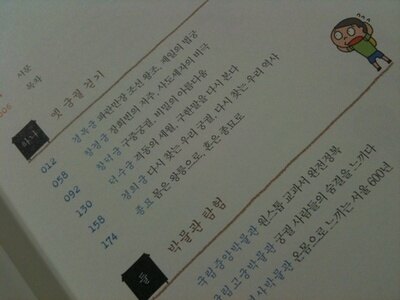 서문
목차
하나 옛 궁궐 걷기
012 경복궁 파란만장 조선 왕조, 제일의 법궁
058 창경궁 장희빈의 저주, 사도세자의 비극
092 창덕궁 구중궁궐, 비밀의 아름다움
130 덕수궁 격동의 세월, 구한말을 다시 본다
158 경희궁 다시 찾는 우리 궁궐, 다시 찾는 우리 역사
174 종묘 몸은 왕궁으로, 혼은 종묘로
둘 박물관 탐험
국립중앙박물관 원스톱 교과서 완전정복
국립고궁박물관 궁궐 사람들의 숨결을 느끼다
역사박물관 온몸으로 느끼는 서울 600년